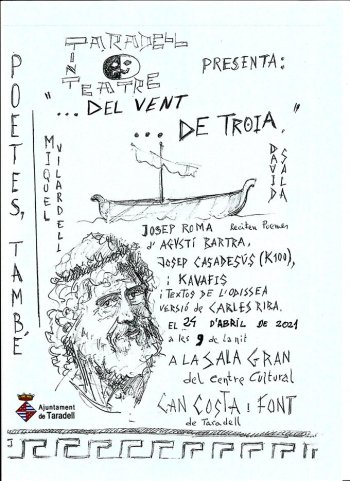 TARADELL
TINT
TEATRE
PRESENTA:
POETES, TAMBÉ
"...DEL VENT
... DE TROIA."
MIQUEL
VILARDELL
DAVID
SALDA
JOSEP ROMA Reciten Poemes
d'AGUSTÍ BARTRA,
JOSEP CASADESÚS (K100),
i KAVAFIS
i TEXTOS DE L'ODISSEA
VERSIÓ de CARLES RIBA.
EL 24 D'ABRIL DE 2021
a les 9 de la nit
A LA SALA GRAN
del Centre Cultural
CAN COSTA i FONT
de Taradell
Ajuntament
de Taradell